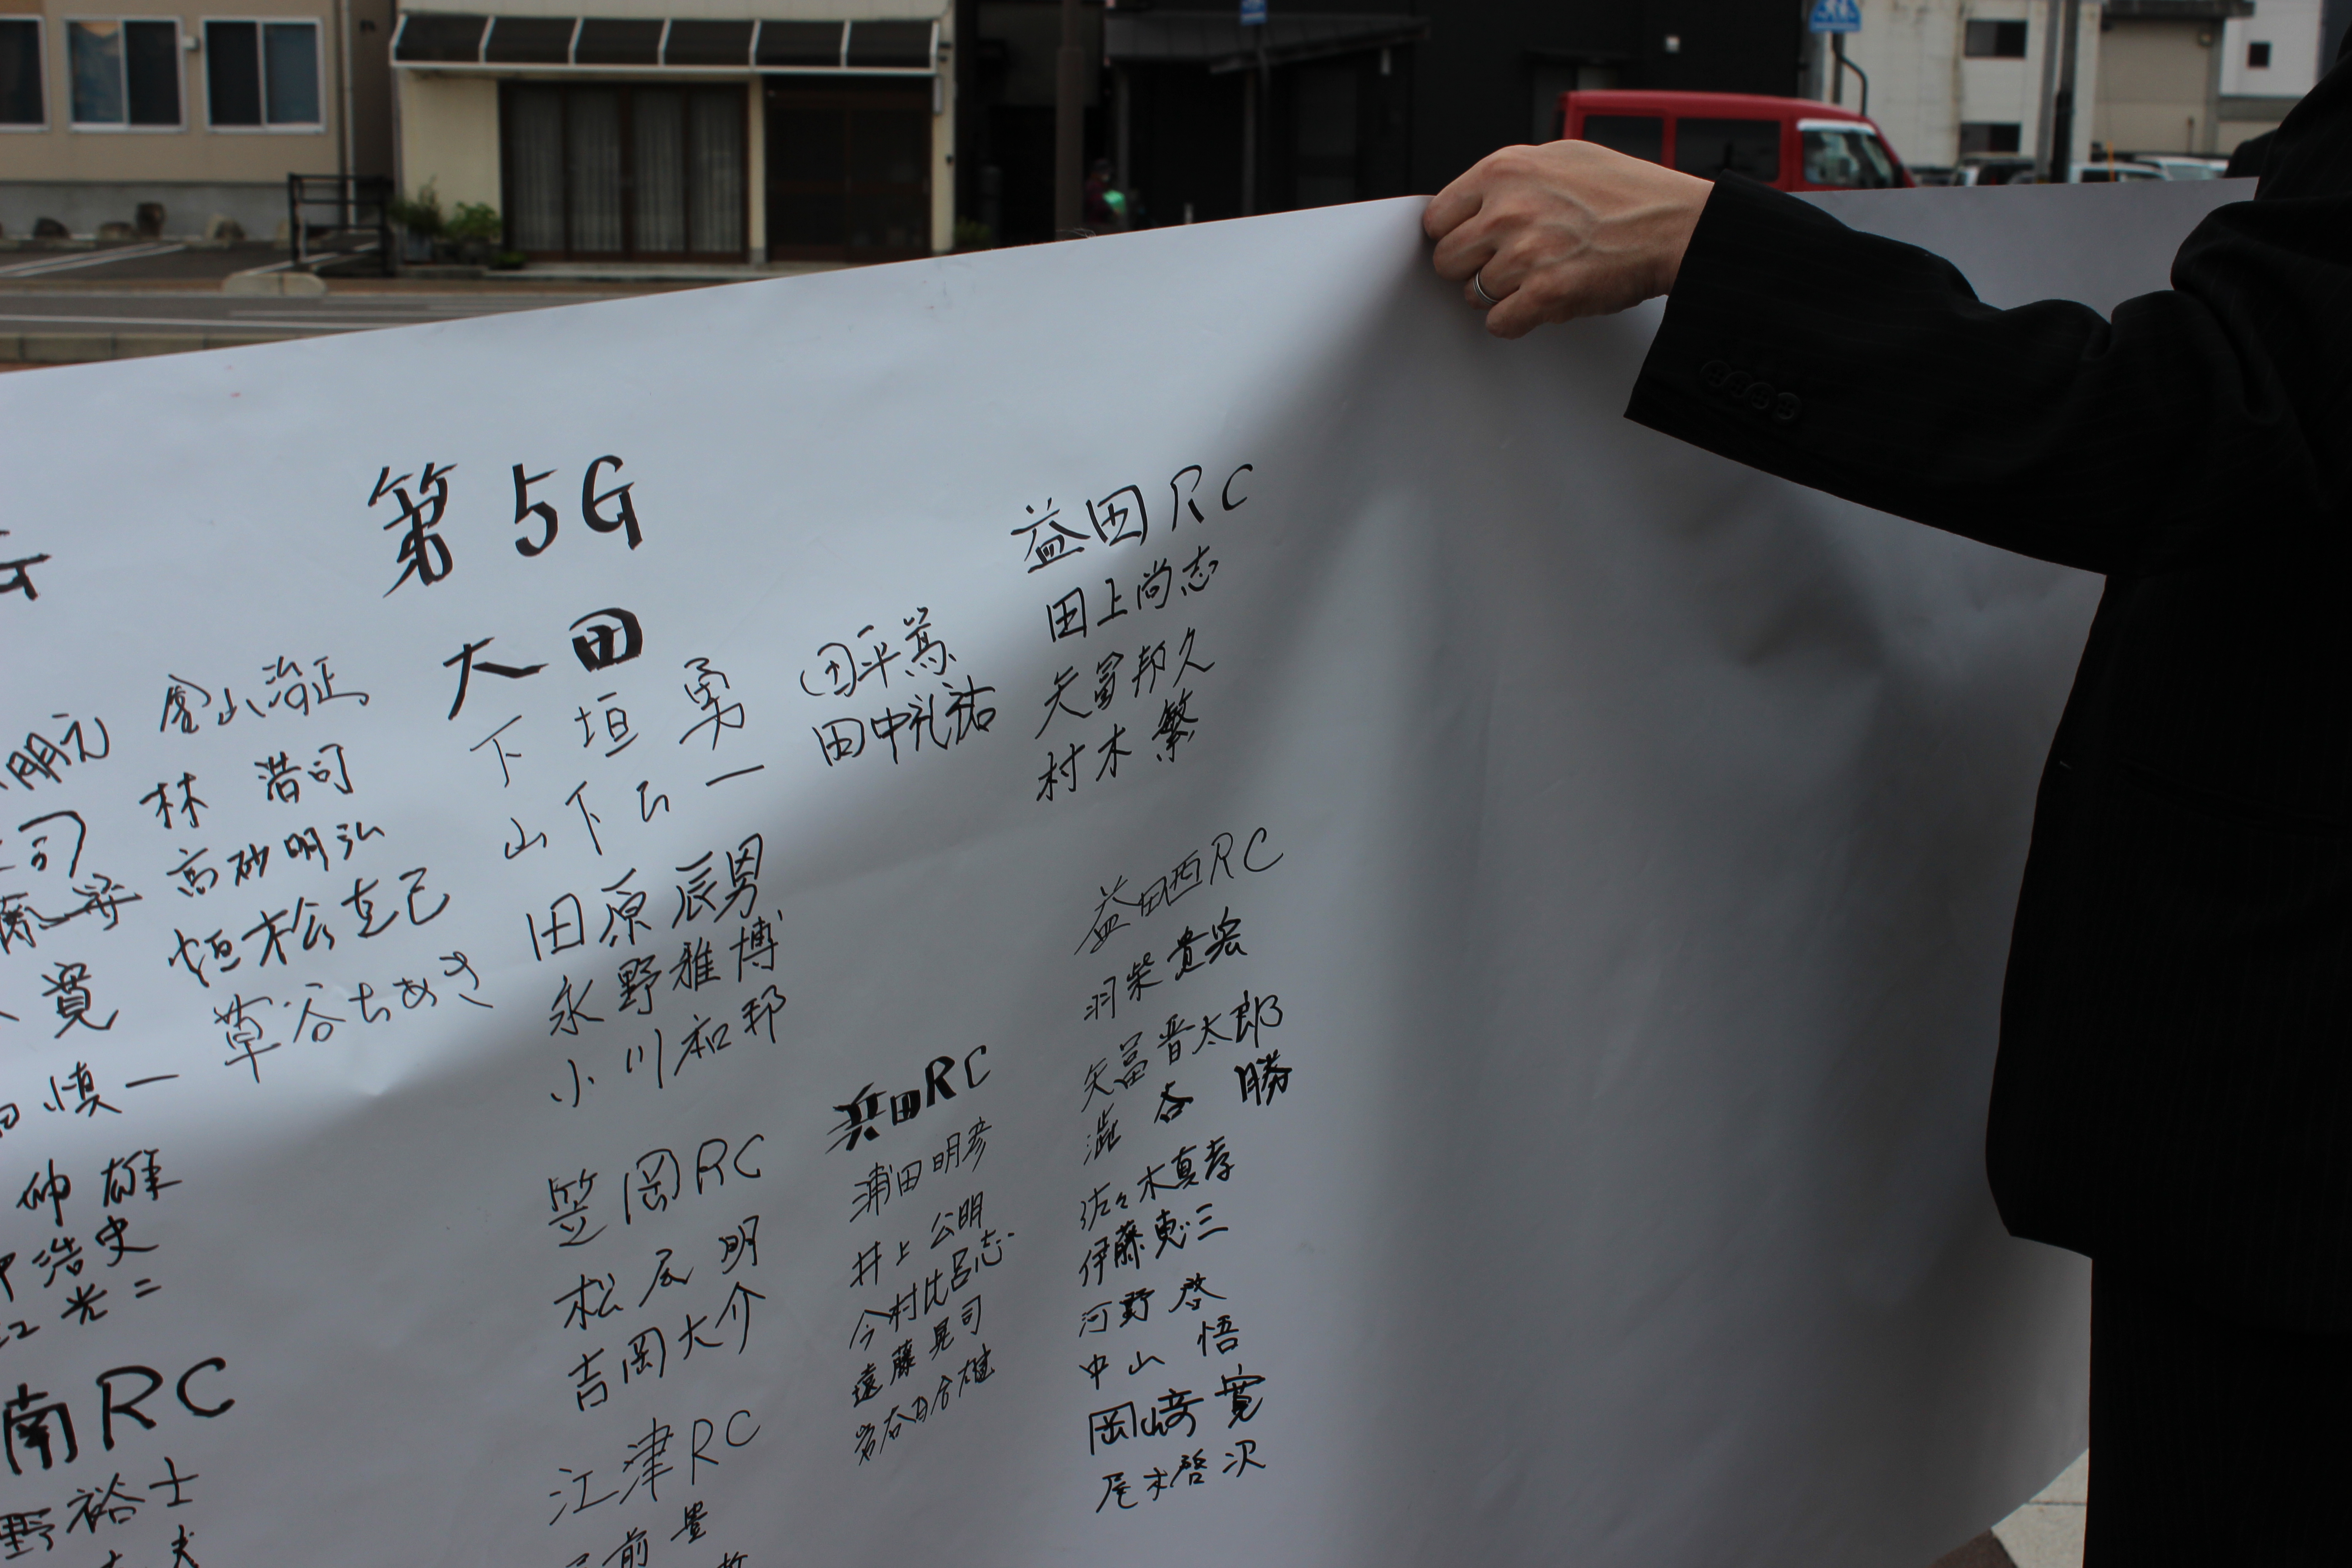 明元
司
寛
慎一
伸雄
浩史
光二
南RC
野裕士
夫
林 浩司
高砂明弘
恒松克己
草谷ちあき
第5G
大田
下垣勇
山下公一
田原辰男
永野雅博
小川和邦
田平篤
田中礼祐
笠岡RC
松尾明
吉岡大介
江津RC
前豊
浜田RC
浦田明彦
井上公明
今村比呂志
遠藤晃司
益田RC
田上尚志
矢冨邦久
村木繁
益田西RC
羽柴貴宏
矢冨晋太郎
澁谷勝
佐々木真孝
伊藤恵三
河野啓
中山悟
岡﨑寛
尾木啓次